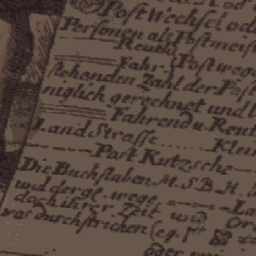 Post Wechsel od
Personen als Postmeist
Reuth
Fahr. Post wege
stehenden Zahl der Post
niglich gerechnet und l
Fahrend u. Reut
Land Strasse Klein
Post Kutzsche
Die Buchstaben M. S. B. H.
und dergl. wege La
doch ihrer Zeit und Or
was durchstrichen (e.g.
oder nur